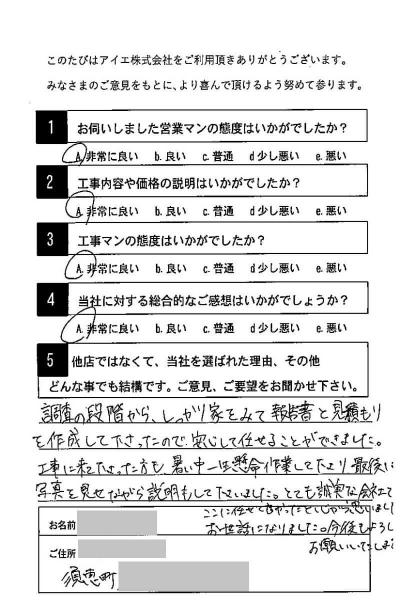 このたびはアイエ株式会社をご利用頂きありがとうございます。
みなさまのご意見をもとに、より喜んで頂けるよう努めて参ります。
1 お伺いしました営業マンの態度はいかがでしたか？
A.非常に良い b.良い c.普通 d少し悪い e.悪い
2 工事内容や価格の説明はいかがでしたか？
A.非常に良い b.良い c.普通 d少し悪い e.悪い
3 工事マンの態度はいかがでしたか？
A.非常に良い b.良い c.普通 d少し悪い e.悪い
4 当社に対する総合的なご感想はいかがでしょうか？
A.非常に良い b.良い c.普通 d少し悪い e.悪い
5 他店ではなくて、当社を選ばれた理由、その他
どんな事でも結構です。ご意見、ご要望をお聞かせ下さい。
調査の段階から、しっかり家をみて報告書と見積もり
を作成して下さったので安心して任せることができました。
工事に来て下さった方も、暑い中一生懸命作業して下さり最後に
写真を見せながら説明もして下さいました。とても誠実な会社で
ここに任せて良かったと心から思いまし
お世話になりました。今後もよろし
お願いいたしま
お名前
ご住所
須恵町